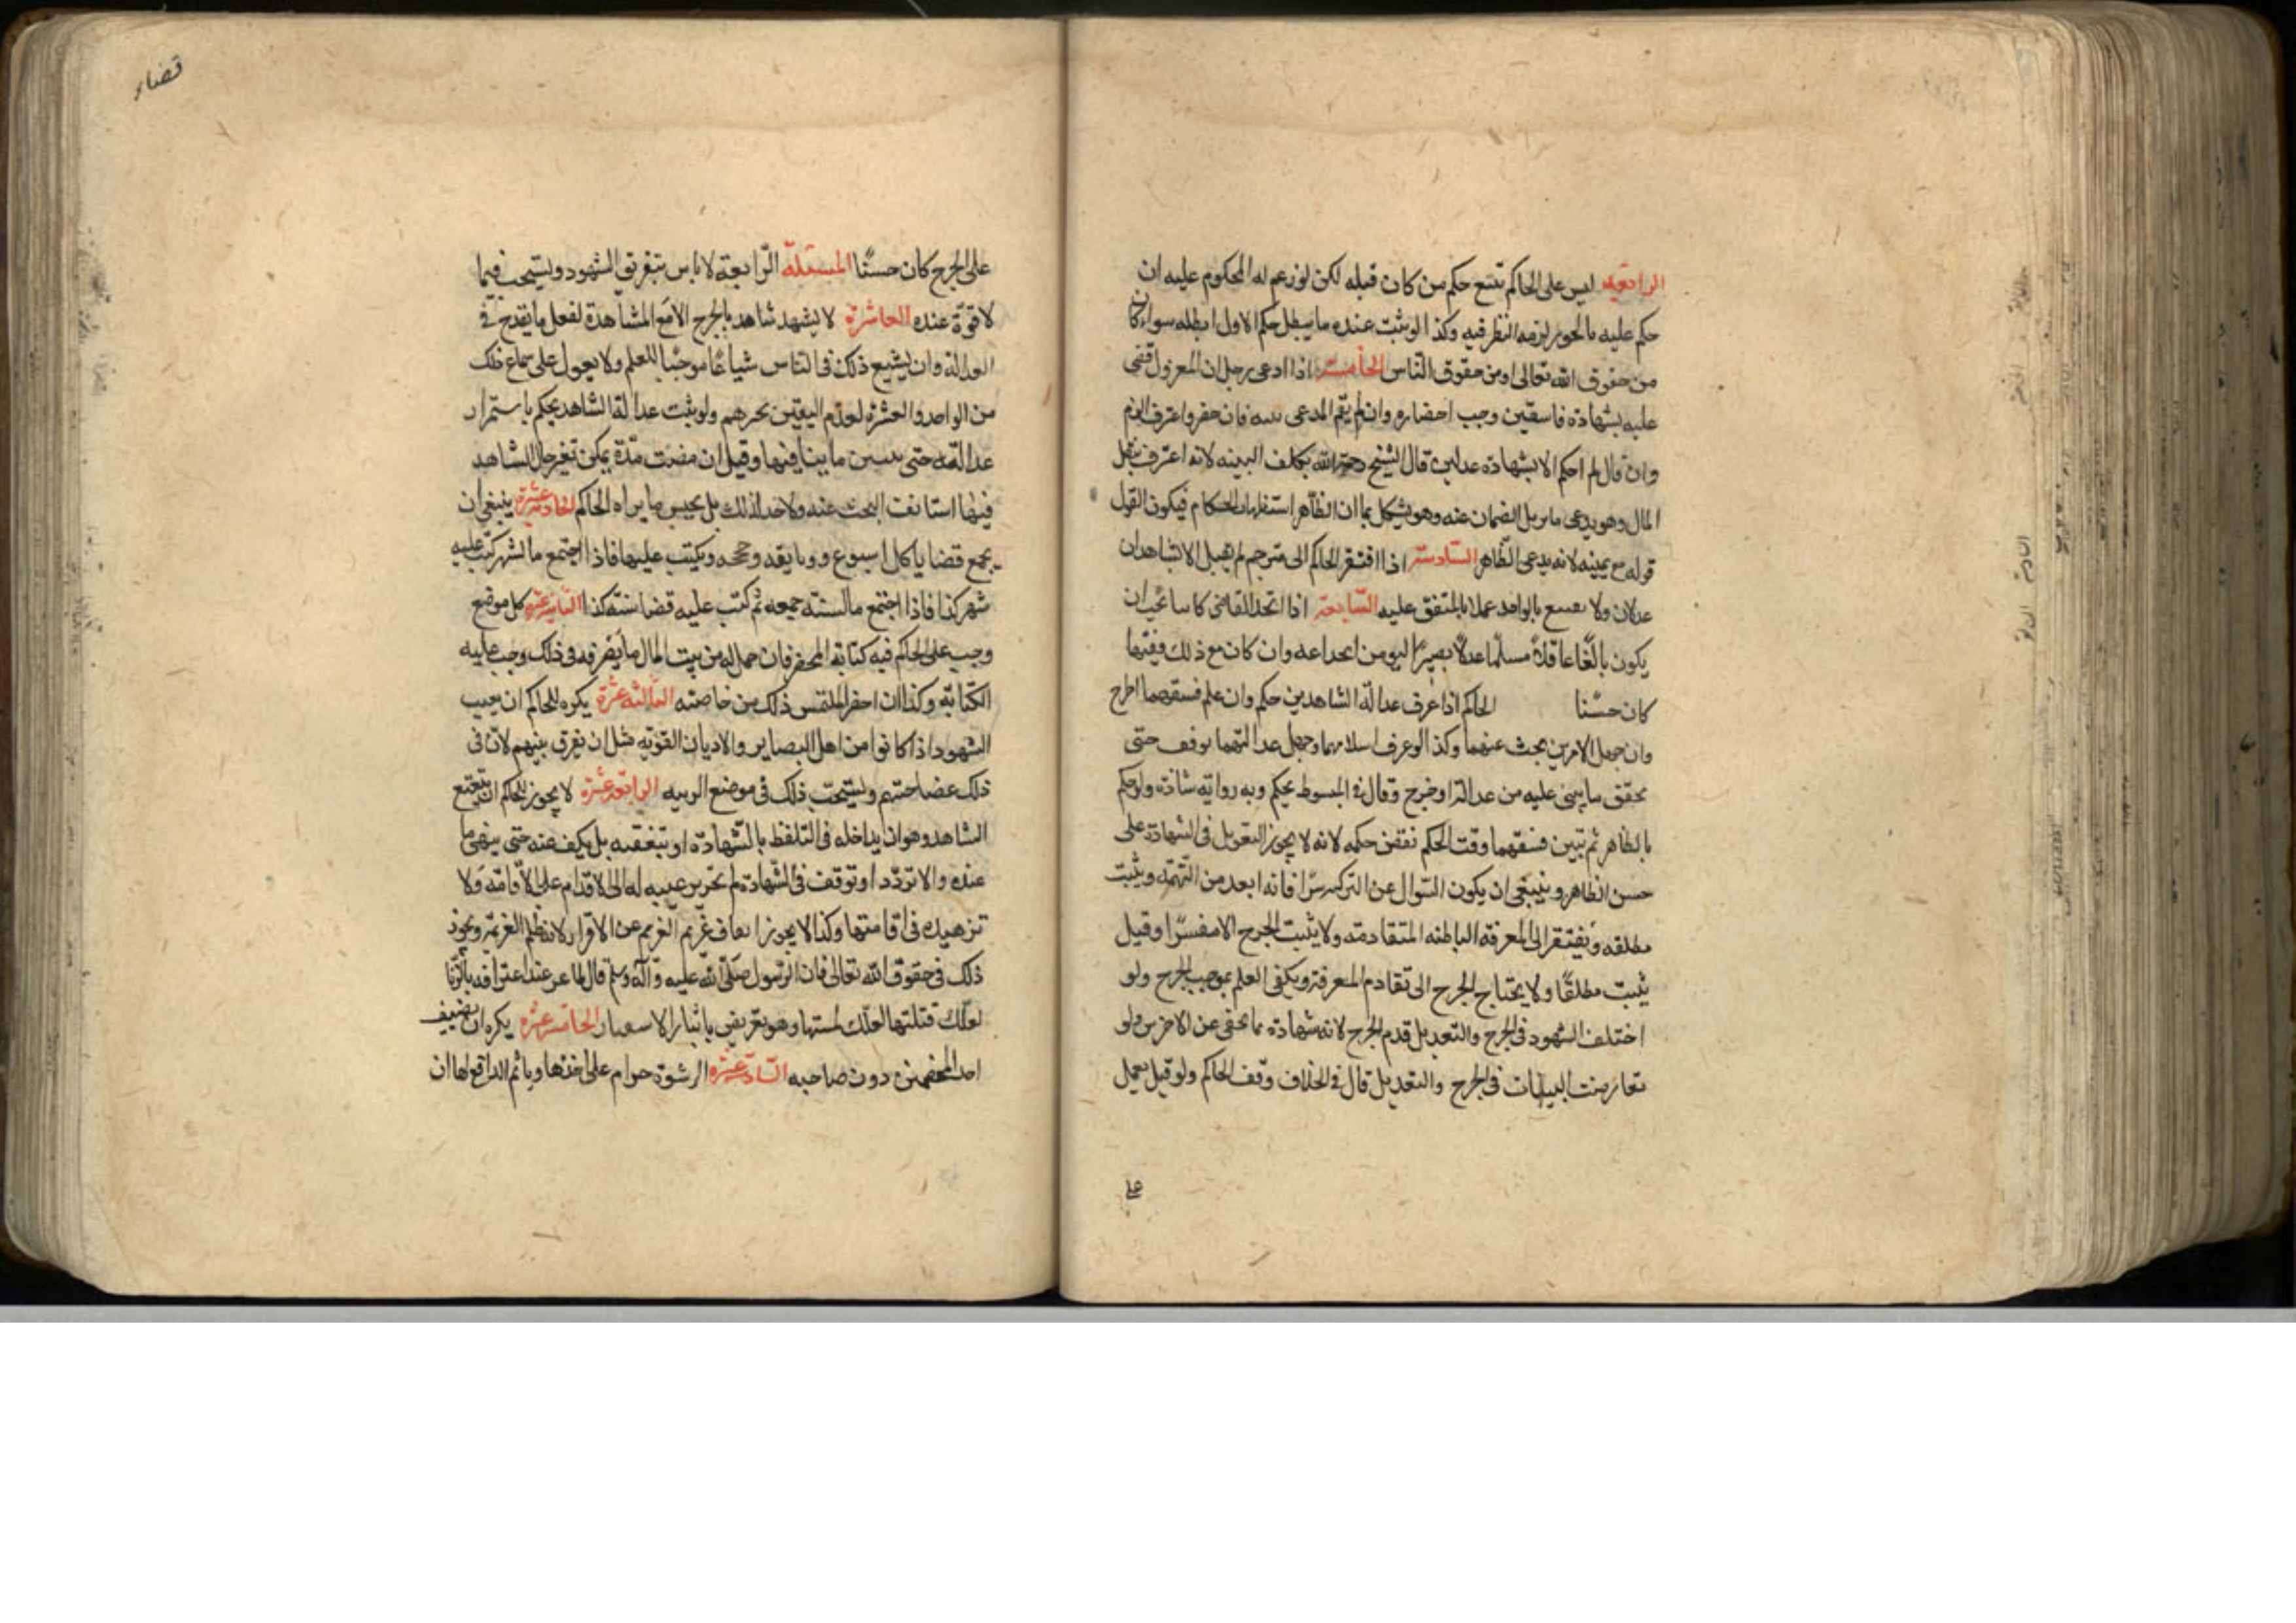 الرابعه ليس على الحاكم تتبع حكم من كان قبله لكن لو زعم له المحكوم عليه ان
حكم عليه بالجور لزمه النظر فيه وكذا لو ثبت عنده ما يبطل حكم الاول ابطله سواء كان
من حقوق الله تعالى او من حقوق الناس الخامسة اذا ادعى رجل ان المعزول قضى
عليه بشهادة فاسقين وجب احضاره وان لم يقم المدعى بينه فان حضر واعترف الزم
وان قال لم احكم الا بشهادة عدلين قال الشيخ رحمه الله يكلف البينه لانه اعترف بنقل
المال وهو يدعى ما يزيل الضمان عنه وهو يشكل بما ان الظاهر استظهار الحكام فيكون القول
قوله مع يمينه لانه يدعى الظاهر السادسة اذا افتقر الحاكم الى مترجم لم يقبل الا شاهدان
عدلان ولا يقنع بالواحد عملا بالمتفق عليه السابعة اذا اتخذ القاضى كاتبا يجب ان
يكون بالغا عاقلا مسلما عدلا بصيرا ليومن انخداعه وان كان مع ذلك فقيها
كان حسنا الحاكم اذا عرف عدالة الشاهدين حكم وان علم فسقهما اطرح
وان جهل الامرين بحث عنهما وكذا لو عرف اسلامهما وجهل عدالتهما توقف حتى
يحقق ما يبنى عليه من عدالة او جرح وقال فى المبسوط يحكم وبه رواية شاذة ولو حكم
بالظاهر ثم تبين فسقهما وقت الحكم نقض حكمه لانه لا يجوز التعويل فى الشهادة على
حسن الظاهر وينبغى ان يكون السوال عن التزكيه سرا فانه ابعد من التهمة ويثبت
مطلقه ويفتقر الى المعرفة الباطنه المتقادمة ولا يثبت الجرح الا مفسرا وقيل
يثبت مطلقا ولا يحتاج الجرح الى تقادم المعرفة ويكفى العلم بموجب الجرح ولو
اختلف الشهود فى الجرح والتعديل قدم الجرح لانه شهادة بما يخفى عن الاخرين ولو
تعارضت البينات فى الجرح والتعديل قال فى الخلاف وقف الحاكم ولو قيل يعمل
على
قضاء
على الجرح كان حسنا المسئلة الرابعة لا باس بتفريق الشهود ويستحب فيما
لا قوة عنده العاشرة لا يشهد شاهد بالجرح الا مع المشاهدة لفعل ما يقدح فى
العدالة وان يشيع ذلك فى الناس شياعا موجبا للعلم ولا يعول على سماع ذلك
من الواحد والعشرة لعدم اليقين بخبرهم ولو ثبت عدالة الشاهد يحكم باستمرار
عدالته حتى يتبين ما ينافيها وقيل ان مضت مدة يمكن تغير حال الشاهد
فيها استانف البحث عنه ولا حد لذلك بل بحسب ما يراه الحاكم الحادية عشرة ينبغى ان
يجمع قضايا كل اسبوع ووثايقه وحججه ويكتب عليها فاذا اجتمع ما لشهر كتب عليه
شهر كذا فاذا اجتمع ما لسنته جمعه ثم كتب عليه قضا سنة كذا الثانية عشرة كل موضع
وجب على الحاكم فيه كتابة المحضر فان حمل له من بيت المال ما يصرفه فى ذلك وجب عليه
الكتابة وكذا ان احضر الملتمس ذلك من خاصته الثالثة عشرة يكره للحاكم ان يعيب
الشهود اذا كانوا من اهل البصاير والاديان القويه مثل ان يفرق بينهم لان فى
ذلك غضاضتهم ويستحب ذلك فى موضع الريبه الرابعة عشرة لا يجوز للحاكم ان يتعتع
الشاهد وهو ان يداخله فى التلفظ بالشهادة او يتعقبه بل يكف عنه حتى ينهى ما
عنده والا تردد او توقف فى الشهادة لم يجز ترغيبه له الى الاقدام على الاقامة ولا
تزهيده فى اقامتها وكذا لا يجوز ايقاف غريم الغريم عن الاقرار لانه ظلم لغريمه ويجوز
ذلك فى حقوق الله تعالى فان الرسول صلى الله عليه وآله وسلم قال لماعز عند اعترافه بالزنا
لعلك قبلتها لعلك لمستها وهو تعريض بايثار الاستتار الخامسة عشرة يكره ان يضيف
احد الخصمين دون صاحبه السادسة عشرة الرشوة حرام على اخذها وياثم الدافع لها ان